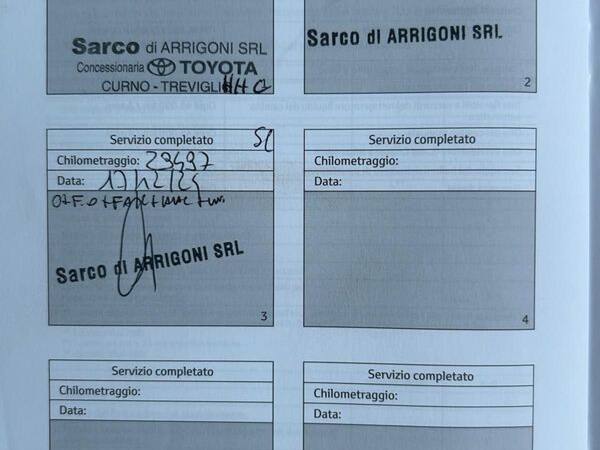 Sarco di ARRIGONI SRL
Concessionaria TOYOTA
CURNO - TREVIGLI
Sarco di ARRIGONI SRL
2
Servizio completato
Chilometraggio: 29497
Data: 17/12/24
Sarco di ARRIGONI SRL
3
Servizio completato
Chilometraggio:
Data:
4
Servizio completato
Chilometraggio:
Data:
Servizio completato
Chilometraggio:
Data: